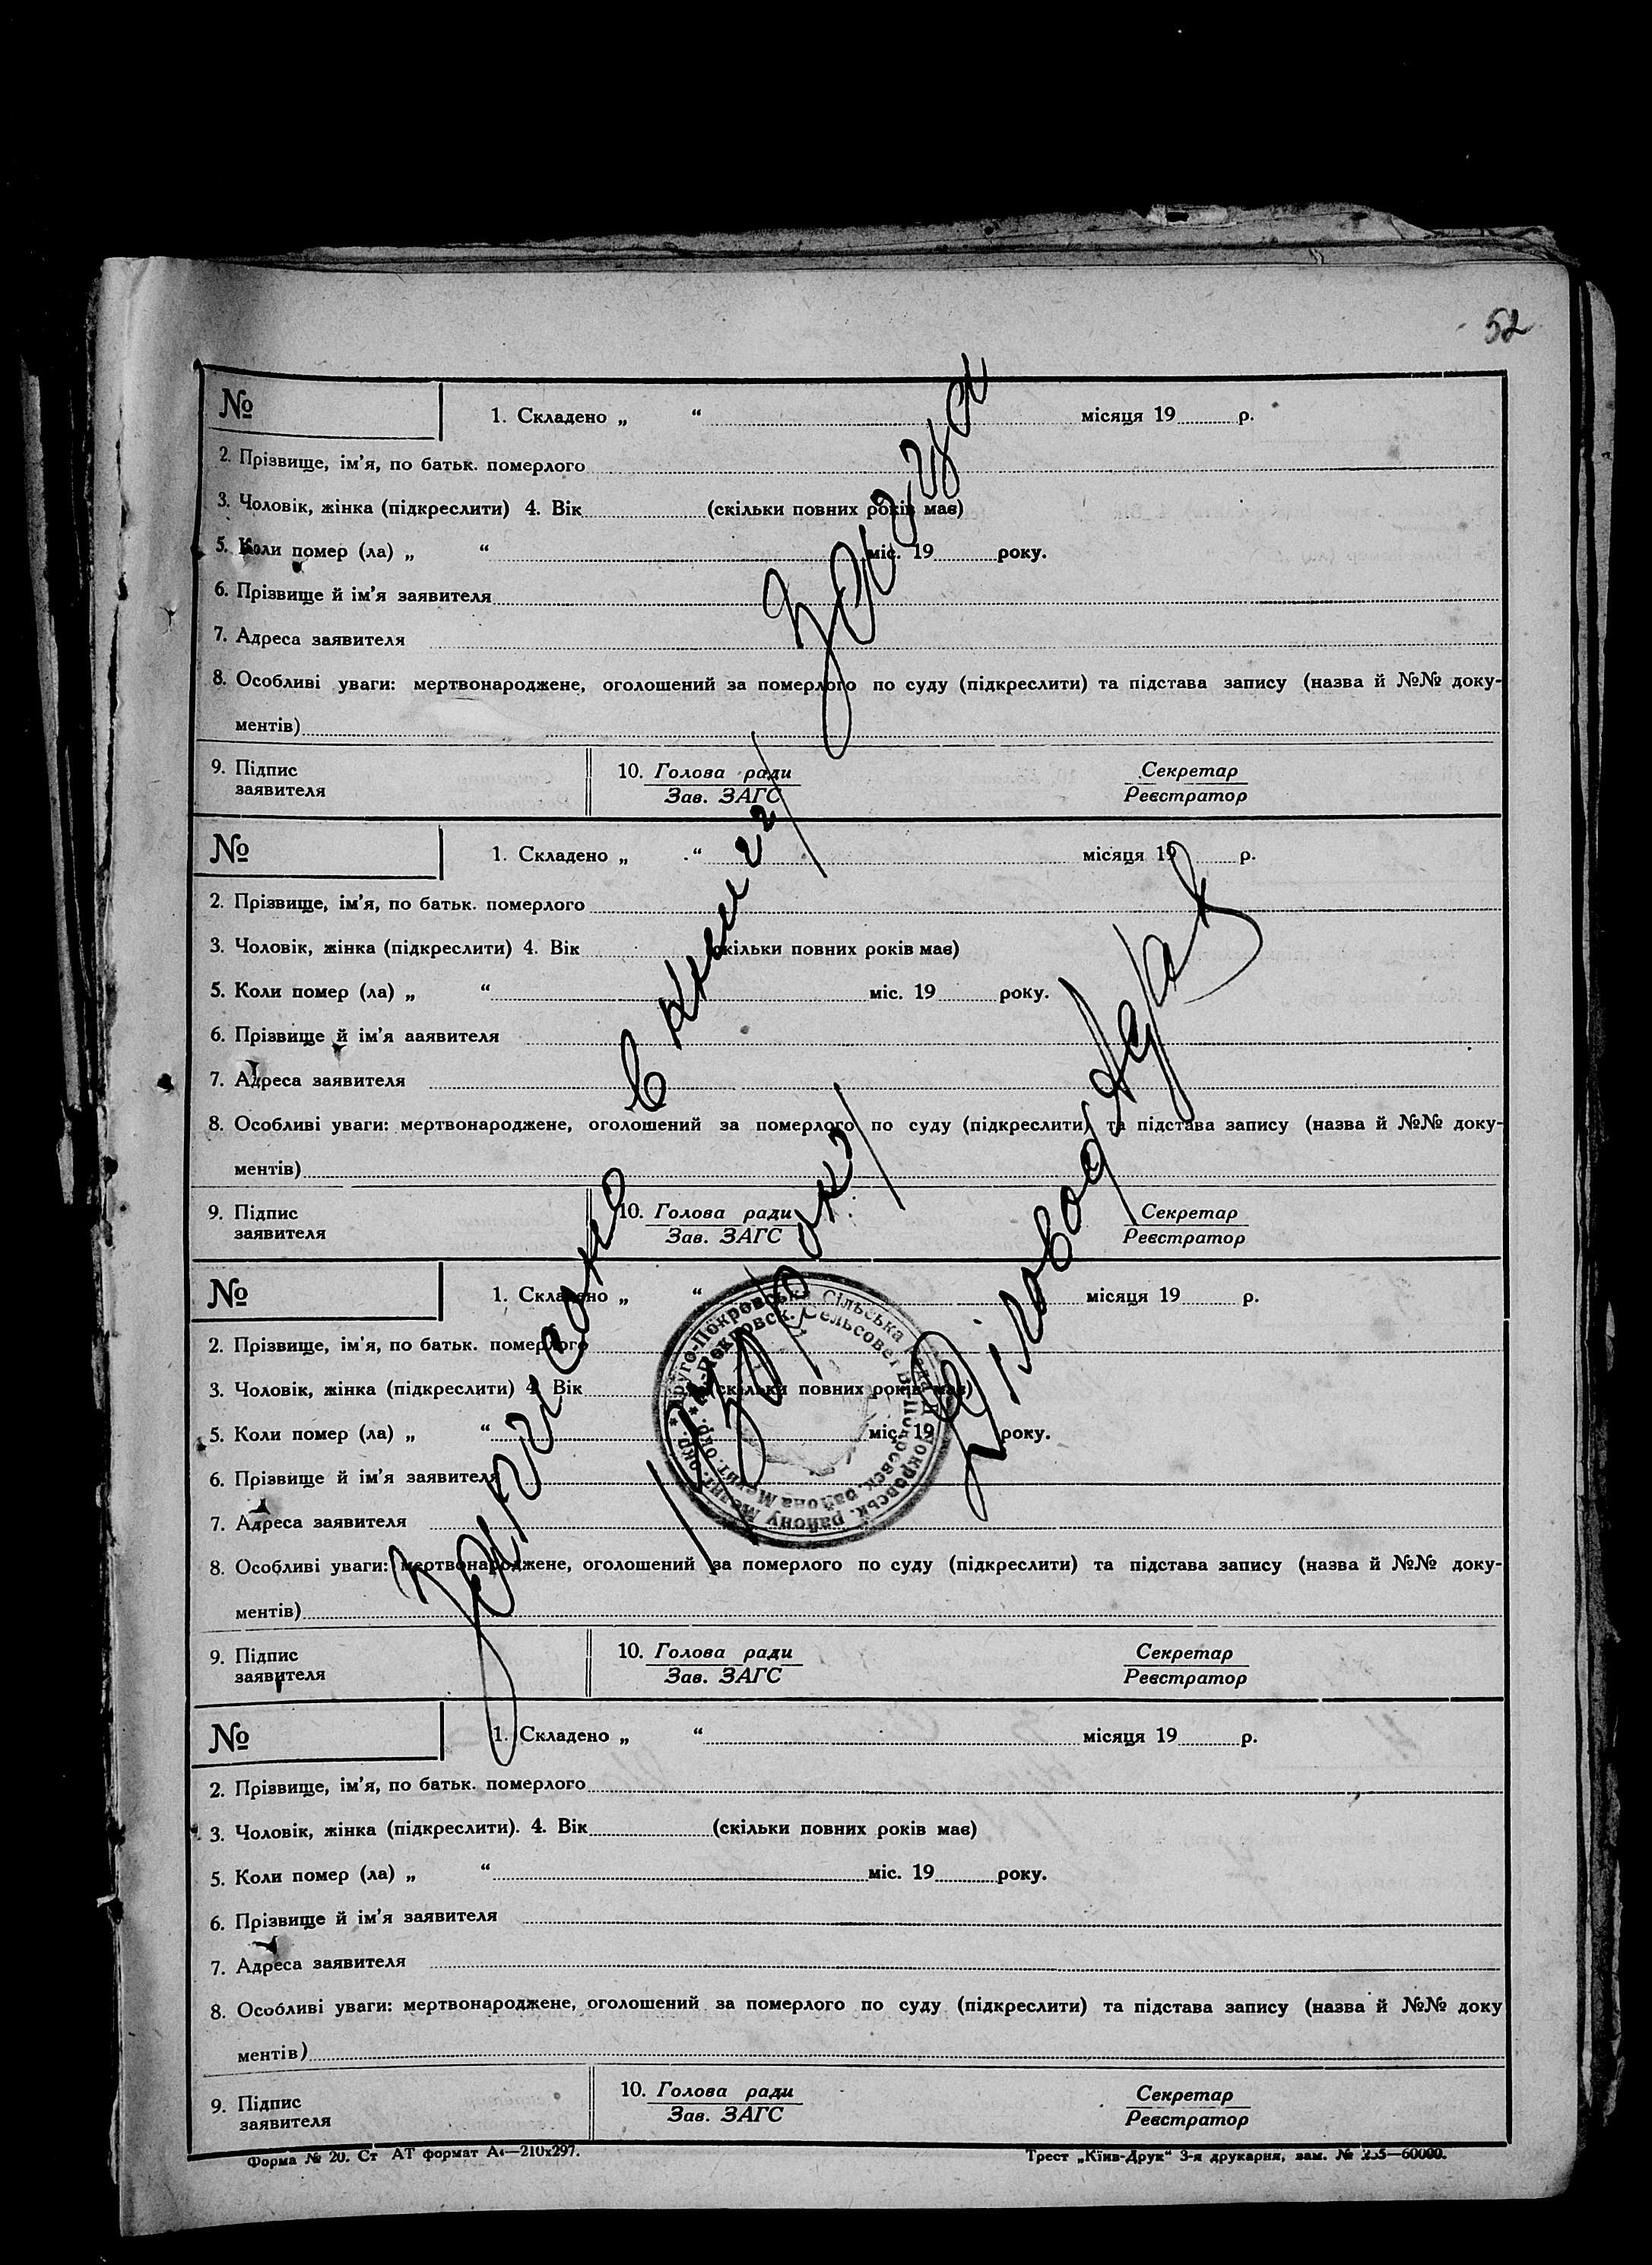 52
№
1. Складено „ “ місяця 19 р.
2. Прізвище, ім'я, по батьк. померлого
3. Чоловік, жінка (підкреслити) 4. Вік (скільки повних років має)
5. Коли помер (ла) „ “ міс. 19 року.
6. Прізвище й ім'я заявителя
7. Адреса заявителя
8. Особливі уваги: мертвонароджене, оголошений за померлого по суду (підкреслити) та підстава запису (назва й №№ доку-
ментів)
9. Підпис
заявителя
10. Голова ради
Зав. ЗАГС
Секретар
Реєстратор
№
1. Складено „ “ місяця 19 р.
2. Прізвище, ім'я, по батьк. померлого
3. Чоловік, жінка (підкреслити) 4. Вік (скільки повних років має)
5. Коли помер (ла) „ “ міс. 19 року.
6. Прізвище й ім'я ааявителя
7. Адреса заявителя
8. Особливі уваги: мертвонароджене, оголошений за померлого по суду (підкреслити) та підстава запису (назва й №№ доку-
ментів)
9. Підпис
заявителя
10. Голова ради
Зав. ЗАГС
Секретар
Реєстратор
№
1. Складено „ “ місяця 19 р.
2. Прізвище, ім'я, по батьк. померлого
3. Чоловік, жінка (підкреслити) 4. Вік (скільки повних років має)
5. Коли помер (ла) „ “ міс. 19 року.
6. Прізвище й ім'я заявителя
7. Адреса заявителя
8. Особливі уваги: мертвонароджене, оголошений за померлого по суду (підкреслити) та підстава запису (назва й №№ доку-
ментів)
9. Підпис
заявителя
10. Голова ради
Зав. ЗАГС
Секретар
Реєстратор
Записано в книгу
Діловод
Покровська Сільська Рада
Сельсовет
району
района
№
1. Складено „ “ місяця 19 р.
2. Прізвище, ім'я, по батьк. померлого
3. Чоловік, жінка (підкреслити). 4. Вік (скільки повних років має)
5. Коли помер (ла) „ “ міс. 19 року.
6. Прізвище й ім'я заявителя
7. Адреса заявителя
8. Особливі уваги: мертвонароджене, оголошений за померлого по суду (підкреслити) та підстава запису (назва й №№ доку
ментів)
9. Підпис
заявителя
10. Голова ради
Зав. ЗАГС
Секретар
Реєстратор
Форма № 20. Ст АТ формат А4—210х297.
Трест „Київ-Друк“ 3-я друкарня, зам. № 235—60000.